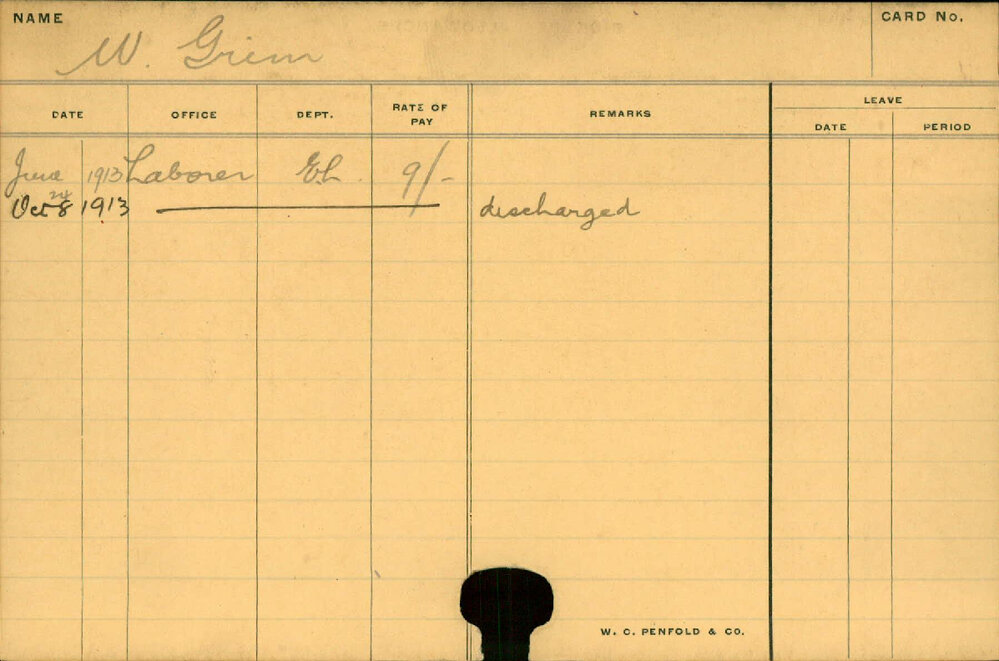 NAME W. Griem CARD No.
DATE OFFICE DEPT. RATE OF PAY REMARKS LEAVE
DATE PERIOD
June 1913 Laborer EL. 9/-
24
Oct 8 1913 discharged
W. C. PENFOLD & CO.